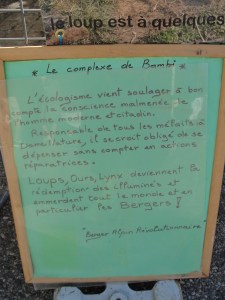 le loup est à quelques
* Le complexe de Bambi *
L'écologisme vient soulager à bon
compte la conscience malmenée de
l'homme moderne et citadin.
Responsable de tous les méfaits à
la nature, il se croit obligé de se
dépenser sans compter en actions
réparatrices.
Loups, Ours, Lynx deviennent la
rédemption des illuminés et
emmerdent tout le monde et en
particulier les Bergers !
Berger